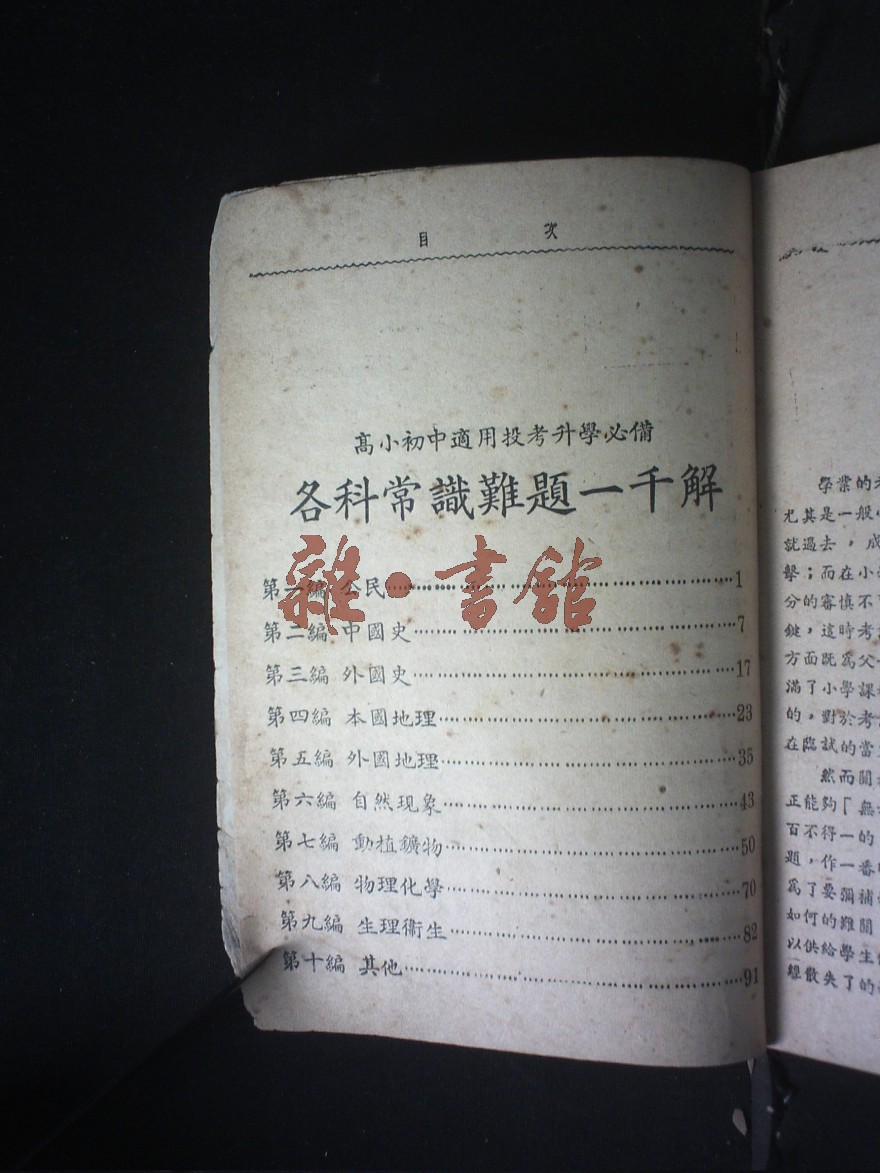 目 次
高小初中適用投考升學必備
各科常識難題一千解
雜·書館
第一編 公民……1
第二編 中國史……7
第三編 外國史……17
第四編 本國地理……23
第五編 外國地理……35
第六編 自然現象……43
第七編 動植鑛物……50
第八編 物理化學……70
第九編 生理衞生……82
第十編 其他……91
學業的
尤其是一般
就過去，成
擊；而在小
分的審慎不
鍵，這時考
方面旣爲父
滿了小學課
的，對於考
在臨試的當
然而關
正能夠「無
百不得一的
題，作一番
爲了要彌補
如何的難關
以供給學生
經散失了的